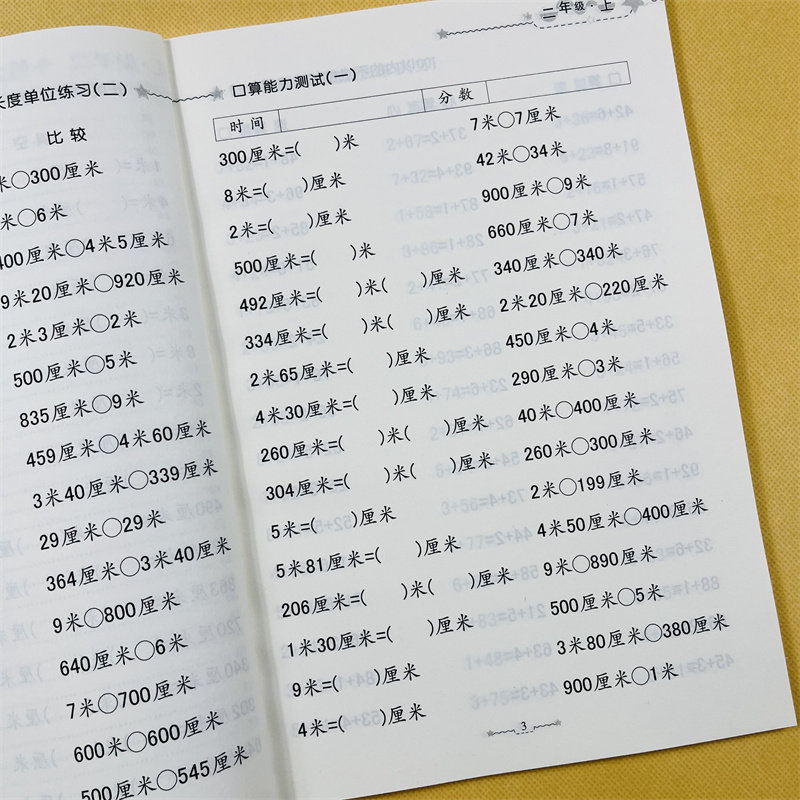 长度单位练习(二)
比较
米○300厘米
米○6米
400厘米○4米5厘米
9米20厘米○920厘米
2米3厘米○2米
500厘米○5米
835厘米○9米
459厘米○4米60厘米
3米40厘米○339厘米
29厘米○29米
364厘米○3米40厘米
9米○800厘米
640厘米○6米
7米○700厘米
600米○600厘米
500厘米○545厘米
二年级·上
口算能力测试(一)
时间 分数
300厘米=( )米
8米=( )厘米
2米=( )厘米
500厘米=( )米
492厘米=( )米( )厘米
334厘米=( )米( )厘米
2米65厘米=( )厘米
4米30厘米=( )厘米
260厘米=( )米( )厘米
304厘米=( )米( )厘米
5米=( )厘米
5米81厘米=( )厘米
206厘米=( )米( )厘米
1米30厘米=( )厘米
9米=( )厘米
4米=( )厘米
7米○7厘米
42米○34米
900厘米○9米
660厘米○7米
340厘米○340米
2米20厘米○220厘米
450厘米○4米
290厘米○3米
40米○400厘米
260米○300厘米
2米○199厘米
4米50厘米○400厘米
9米○890厘米
500厘米○5米
3米80厘米○380厘米
900厘米○1米
3